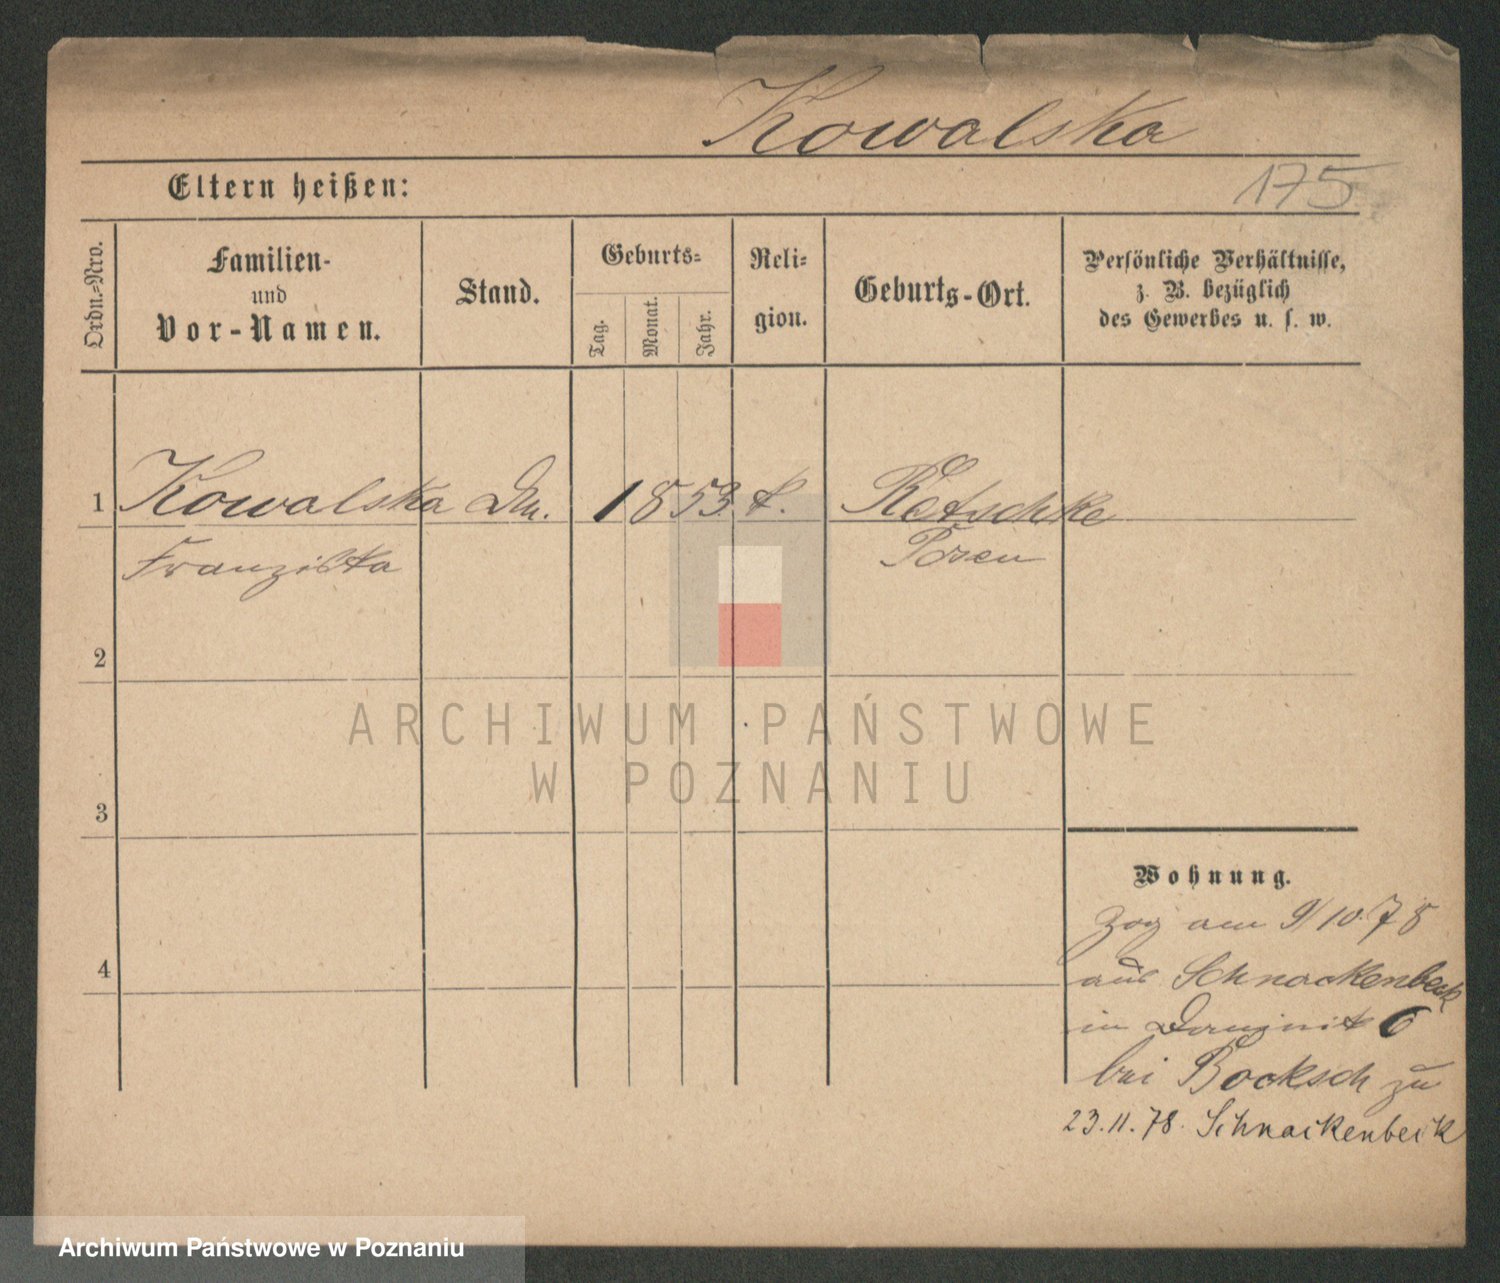 Kowalska
Eltern heißen:
175
Ordn.-Nro.
Familien-
und
Vor-Namen.
Stand.
Geburts-
Tag.
Monat.
Jahr.
Reli-
gion.
Geburts-Ort.
Persönliche Verhältnisse,
z. B. bezüglich
des Gewerbes u. s. w.
1 Kowalska 1853 k. Retschke
Franziska Posen
2
3
4
ARCHIWUM PAŃSTWOWE
W POZNANIU
Wohnung.
Zog am 9/10.78
aus Schnackenbeck
in 6
bei Bocksch zu
23.11.78. Schnackenbeck
Archiwum Państwowe w Poznaniu